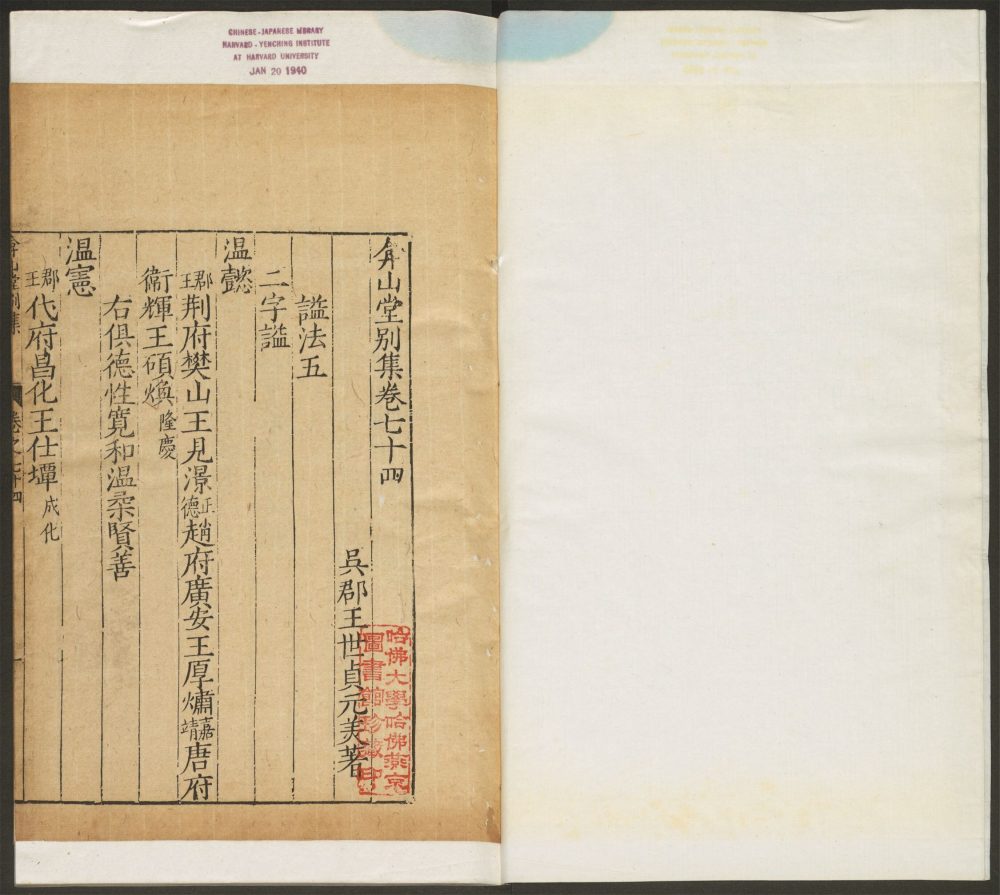 CHINESE-JAPANESE LIBRARY
HARVARD-YENCHING INSTITUTE
AT HARVARD UNIVERSITY
JAN 20 1940
弇山堂别集卷七十四
吳郡王世貞元美著
謚法五
二字謚
温懿
郡王荆府樊山王見澋正德趙府廣安王厚𤏶嘉靖唐府
衛輝王碩㷆隆慶
右俱德性寛和温柔賢善
温憲
郡王代府昌化王仕墰成化
弇山堂别集
卷之七十四
一
哈佛大學哈佛燕京
圖書館珍藏印